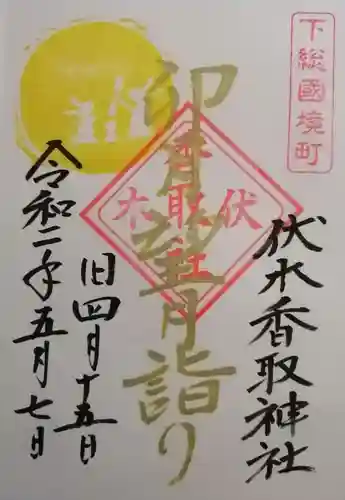 下総國境町
伏木香取神社
卯月望月詣り
伏木香取社
旧四月十五日
令和二年五月七日